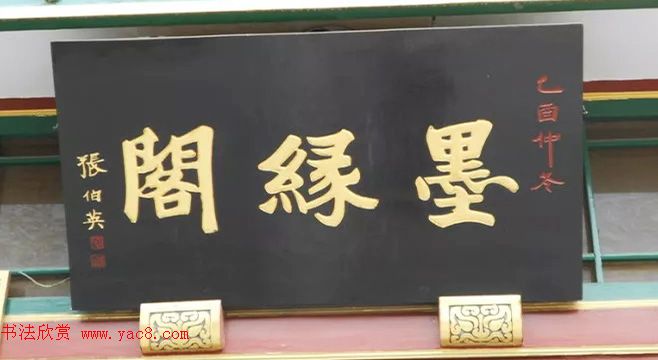 乙酉仲冬
墨緣閣
張伯英
书法欣赏 www.yac8.com